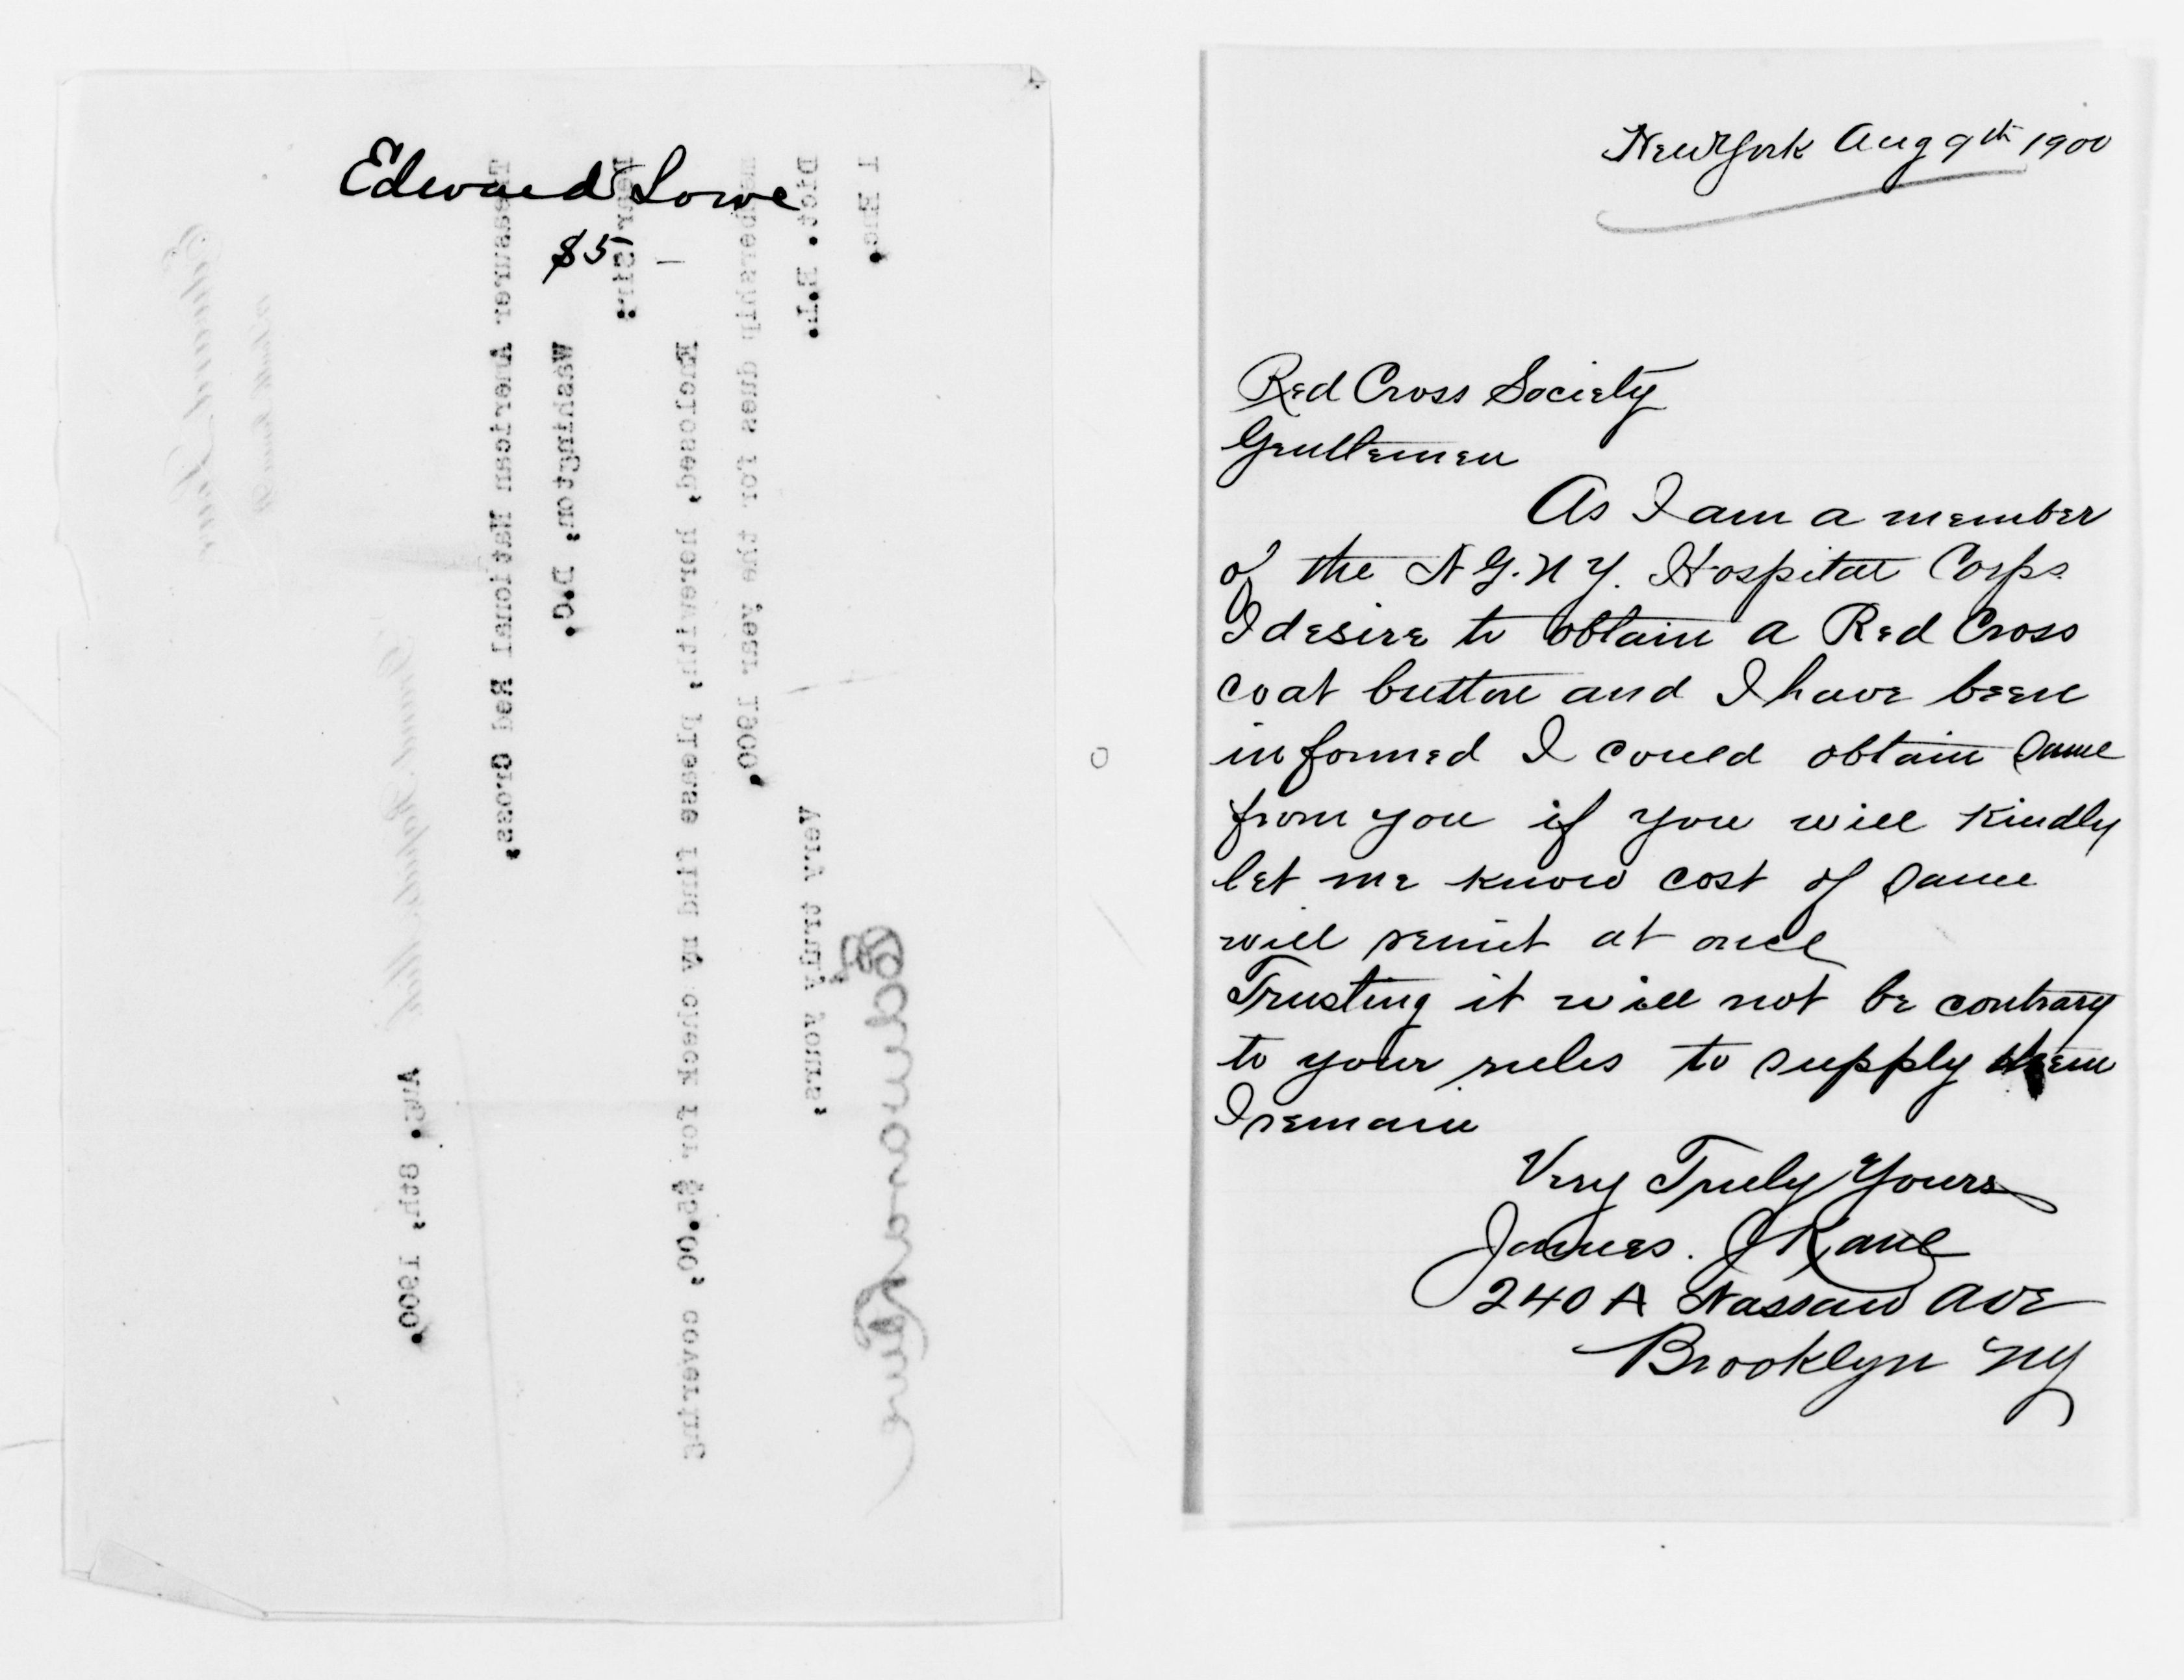 Edward Lowe
$5 —
Aug. 8th, 1900.
Treasurer American National Red Cross,
Washington, D.C.
Dear Sir:
Enclosed, herewith, please find my check for $5.00, covering
membership dues for the year 1900.
Very truly yours,
Edward Lowe
Dict. E.L.
1 Enc.
New York Aug 9th 1900
Red Cross Society
Gentlemen
As I am a member
of the N.G.N.Y. Hospital Corps.
I desire to obtain a Red Cross
coat button and I have been
informed I could obtain same
from you if you will kindly
let me know cost of same
will remit at once
Trusting it will not be contrary
to your rules to supply them
I remain
Very Truly Yours
James. J Kane
240 A Nassau Ave
Brooklyn NY